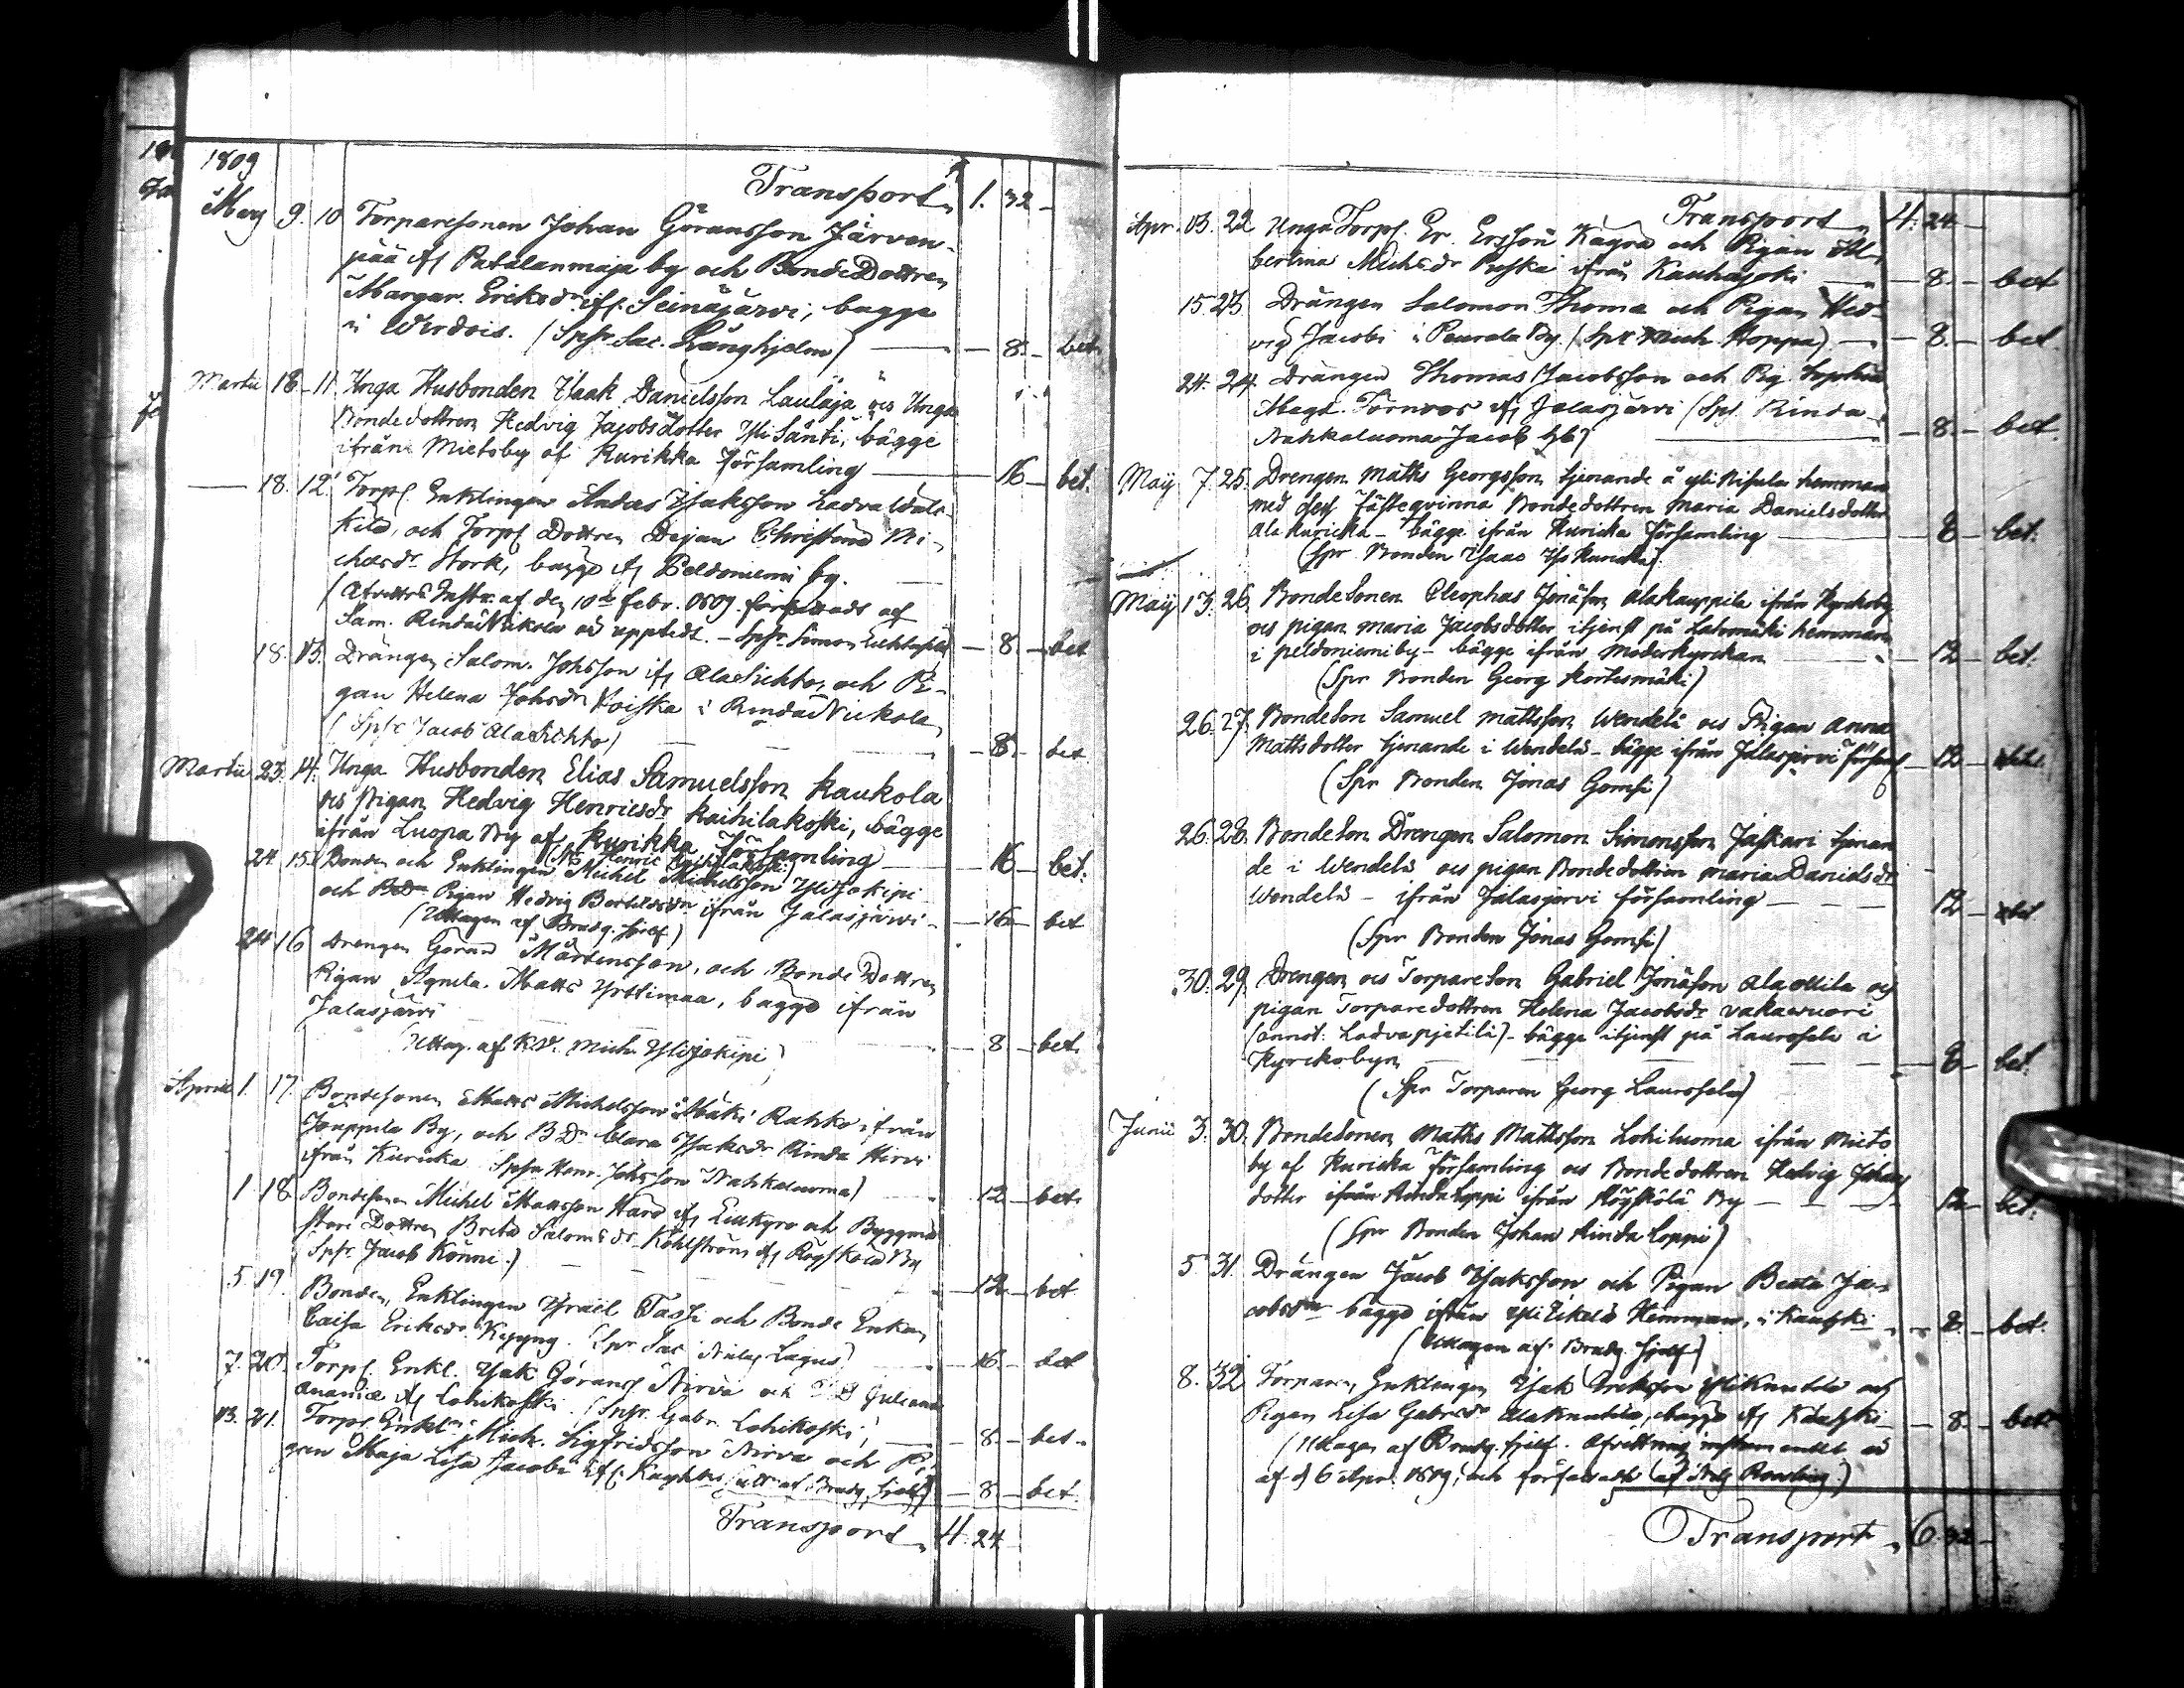 1809
Transport 1. 32 –
Mars 9. 10 Torparesonen Johan Göransson Järven-
pää ifr Patalanmaja by och BondeDottren
Margar. Eriksdr ifr. Seinäjärvi, bägge
i Wirdois. (Spr Sac. Långhjelm) — 8. – bet.
Martii 18 – 11. Unga Husbonden Isaak Danielsson Laulaja och Unga
Bondedottren Hedvig Jacobsdotter Yli Sänti, bägge
ifrån Mietoby af Kurikka Församling — 16 – bet.
— 18. 12. Torp. Enklingen Anders Isaksson Ladvaluhta-
och Torp Dottren Pigan Christina Mi-
chelsdr Stork, bägge ifr Peldoniemi by.
(Afvittrs Instr. af den 10de Febr. 1809. författadt af
Sam. Rinda Nikola och uppvist. – Spr Simon — 8. – bet
18. 13. Drängen Salom. Johsson ifr AlaLuhta, och Pi-
gan Helena Johsdr Koiska i Rinda Nickola
(Spr Jacob Ala Luhta) — 8. – bet
Martii 23. 14. Unga Husbonden Elias Samuelsson Kaukola
och Pigan Hedvig Henricsdr Kaihilakoski, bägge
ifrån Luopa By af Kurikka Församling — 16 – bet.
24. 15. Bonden och Enklingen Michel Michelsson Ylijokipi
och Pigan Hedvig Bertilsdr ifrån Jalasjärvi – 16 – bet
(Uttagen af Brudg. sjelf)
24 16 Drengen Göran Mårtensson, och Bonde Dottren
Pigan Agneta Matts Yrttimaa, bägge ifrån
Jalasjärvi
(Uttag. af Mich. Ylijokipi) — 8 – bet.
Aprill 1. 17. Bondesonen Matts Michelsson Mäki Rahko ifrån
Jouppila By, och Clara Isaksdr Rinda Hirvi
ifrån Kuricka Spr Henr. Johsson Nahkaluoma) — 12 – bet.
1 18. Bondesonen Michel Matsson Harö ifr Lillkyro och Byggmä-
stare Dottren Brita Salomsdr Kohlström ifr Röyskölä By
(Spr. Jacob Könni.) — 12 – bet.
5 19. Bonden, Enklingen Israel Fasti och Bonde Enkan
Caisa Eriksdr Kyyny. (Spr Sac Lagus) — 16 – bet
7. 20. Torp. Enkl. Isak Görans Nirva och Juliana
Ananiæ ifr Lohikoski. (Spr. Gabr. Lohikoski) — 8. – bet.
13. 21. Torp. Enkl. Mich. Sigfridsson Nirva och Pi-
gan Maja Lisa Jacobi ifr. (utt. af Brudg. sjelf) — 8. – bet.
Transport 4. 24.
Transport 4. 24 –
Apr. 13. 22 Unga Torp. Er. Ersson Kägrä och Pigan Al-
bertina Michsdr Puska ifrån Kauhajoki — 8. – bet
15. 23 Drängen Salomon Thoma och Pigan Hed-
vig Jacobi i Peurala By. (Spr Mich. Hoppa) — 8. – bet
24. 24. Drängen Thomas Jacobsson och Pig. Sophia
Magd. Törnroos ifr Jalasjärvi (Spr. Rinda
Nahkaluoma Jacob) — 8. – bet.
Maij 7. 25. Drengen Matts Georgsson tjenande å yli Ripula hemman
med dess Fästeqvinna Bondedottren Maria Danielsdotter
Ala Kuricka – bägge ifrån Kuricka Församling — 8 – bet.
(Spr. Bonden Isaac Kuricka)
Maij 13. 26. BondeSonen Cleophas Jonæson Alakauppila ifrån Kyrkoby
och pigan Maria Jacobsdotter itjenst på Latomäki hemman
i peldoniemi by – bägge ifrån Moderkyrckan — 12 – bet.
(Spr Bonden Georg Kortesmäki)
26. 27. BondeSon Samuel Mattsson Wendelä och Pigan Anna
Mattsdotter tjenande i Wendelä – bägge ifrån Jalasjervi Förs. — 12 – bet.
(Spr Bonden Jonas Gomsi)
26. 28. BondeSon Drengen Salomon Simonsson Jaskari tjenan-
de i Wendelä och pigan Bondedottren Maria Danielsdr
Wendelä – ifrån Jalasjervi församling — 12 – bet
(Spr Bonden Jonas Gomsi)
30. 29. Drengen och TorpareSon Gabriel Jonæson Ala Ollila och
pigan Torparedottren Helena Jacobsdr Vakavuori
(annot. Ladvapjetilä) – bägge itjenst på Laurosela i
Kyrckobyn — 8 – bet.
(Spr Torparen Georg Laurosela)
Junii 3. 30. BondeSonen Matts Mattsson Lohiluoma ifrån Mieto
by af Kuricka Församling och Bondedottren Hedvig Johans
dotter ifrån Rinda Loppi ifrån Röyskölä By — 12 – bet.
(Spr Bonden Johan Rinda Loppi)
5. 31. Drängen Jacob Isaksson och Pigan Beata Ja-
cobsdr bägge ifrån Hemman, i Kauhajoki — 8. – bet.
(Uttagen af Brudg. sjelf)
8. 32 Torparen, Enklingen Isak Eriksson Yli Knuutila och
Pigan Lisa Gabrsdr Alaknutila, bägge ifr Kauhajoki — 8. – bet.
(Uttagen af Brudg. sjelf. Afvittrings instrumentet
af d 6 Apr. 1809, och författadt af)
Transport 6. 32 –